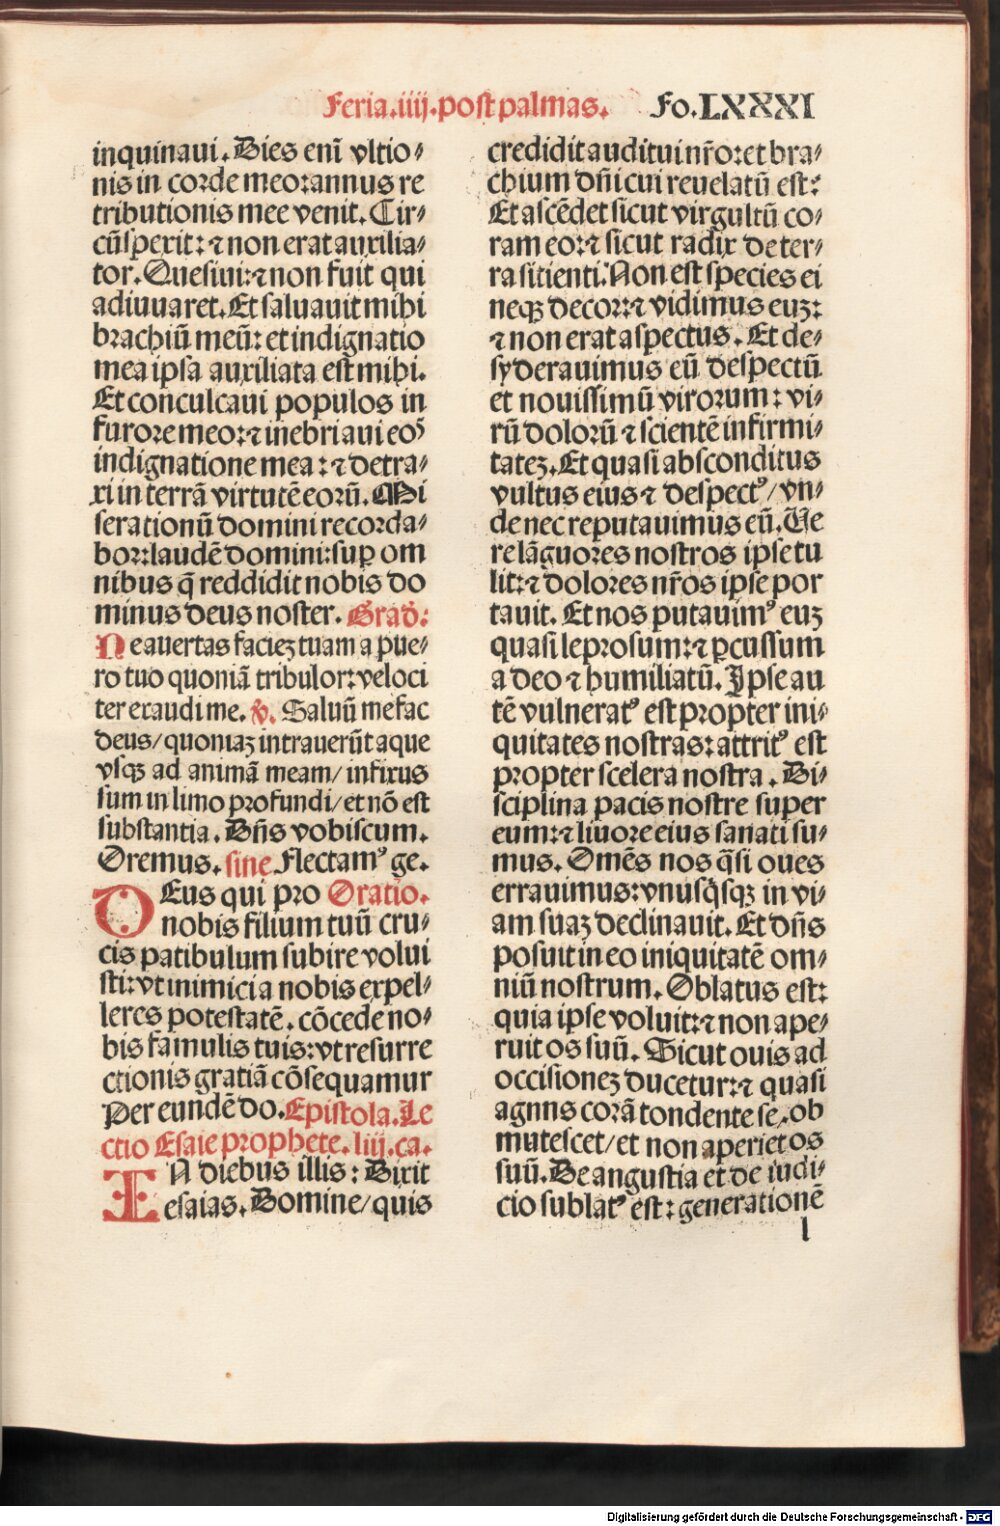 Feria.iiij.post palmas. Fo.LXXXI
inquinaui. Dies eni̅ vltio⸗
nis in corde meo: annus re
tributionis mee venit. Cir⸗
cu̅spexit: ⁊ non erat auxilia⸗
tor. Quesiui: ⁊ non fuit qui
adiuuaret. Et saluauit mihi
brachiu̅ meu̅: et indignatio
mea ipsa auxiliata est mihi.
Et conculcaui populos in
furore meo: ⁊ inebriaui eos
indignatione mea: ⁊ detra⸗
xi in terra̅ virtute̅ eoru̅. Mi
serationu̅ domini recorda⸗
bor: laude̅ domini: suꝑ om
nibus q̅ reddidit nobis do
minus deus noster. Grad̅:
Ne auertas facieꝫ tuam a pue⸗
ro tuo quonia̅ tribulor: veloci
ter exaudi me. ℣. Saluu̅ me fac
deus/ quoniaꝫ intrauerūt aque
vsqꝫ ad anima̅ meam/ infixus
sum in limo profundi/ et no̅ est
substantia. Dn̅s vobiscum.
Oremus. sine Flectamꝰ ge.
DEus qui pro Oratio.
nobis filium tuu̅ cru⸗
cis patibulum subire volui
sti: vt inimici a nobis expel⸗
leres potestate̅. co̅cede no⸗
bis famulis tuis: vt resurre
ctionis gratia̅ co̅sequamur
Per eunde̅ do. Epistola. Le
ctio Esaie prophete. liij. ca.
IN diebus illis: Dixit
esaias. Domine/ quis
credidit auditui nr̅o: et bra⸗
chium dn̅i cui reuelatu̅ est:
Et asce̅det sicut virgultu̅ co⸗
ram eo: ⁊ sicut radix de ter⸗
ra sitienti. Non est species ei
neqꝫ decor: ⁊ vidimus euꝫ:
⁊ non erat aspectus. Et de⸗
syderauimus eu̅ despectu̅
et nouissimu̅ virorum: vi⸗
ru̅ doloru̅ ⁊ sciente̅ infirmi⸗
tateꝫ. Et quasi absconditus
vultus eius ⁊ despectꝰ/ vn⸗
de nec reputauimus eu̅. Ue
re la̅guores nostros ipse tu
lit: ⁊ dolores nr̅os ipse por
tauit. Et nos putauimꝰ euꝫ
quasi leprosum: ⁊ ꝑcussum
a deo ⁊ humiliatu̅. Ipse au
te̅ vulneratꝰ est propter ini⸗
quitates nostras: attritꝰ est
propter scelera nostra. Di⸗
sciplina pacis nostre super
eum: ⁊ liuore eius sanati su⸗
mus. Ome̅s nos q̅si oues
errauimus: vnusq̅sqꝫ in vi⸗
am suaꝫ declinauit. Et dn̅s
posuit in eo iniquitate̅ om⸗
niu̅ nostrum. Oblatus est:
quia ipse voluit: ⁊ non ape⸗
ruit os suu̅. Sicut ouis ad
occisioneꝫ ducetur: ⁊ quasi
agnns cora̅ tondente se, ob
mutescet/ et non aperiet os
suu̅. De angustia et de iudi⸗
cio sublatꝰ est: generatione̅
l
Digitalisierung gefördert durch die Deutsche Forschungsgemeinschaft - DFG